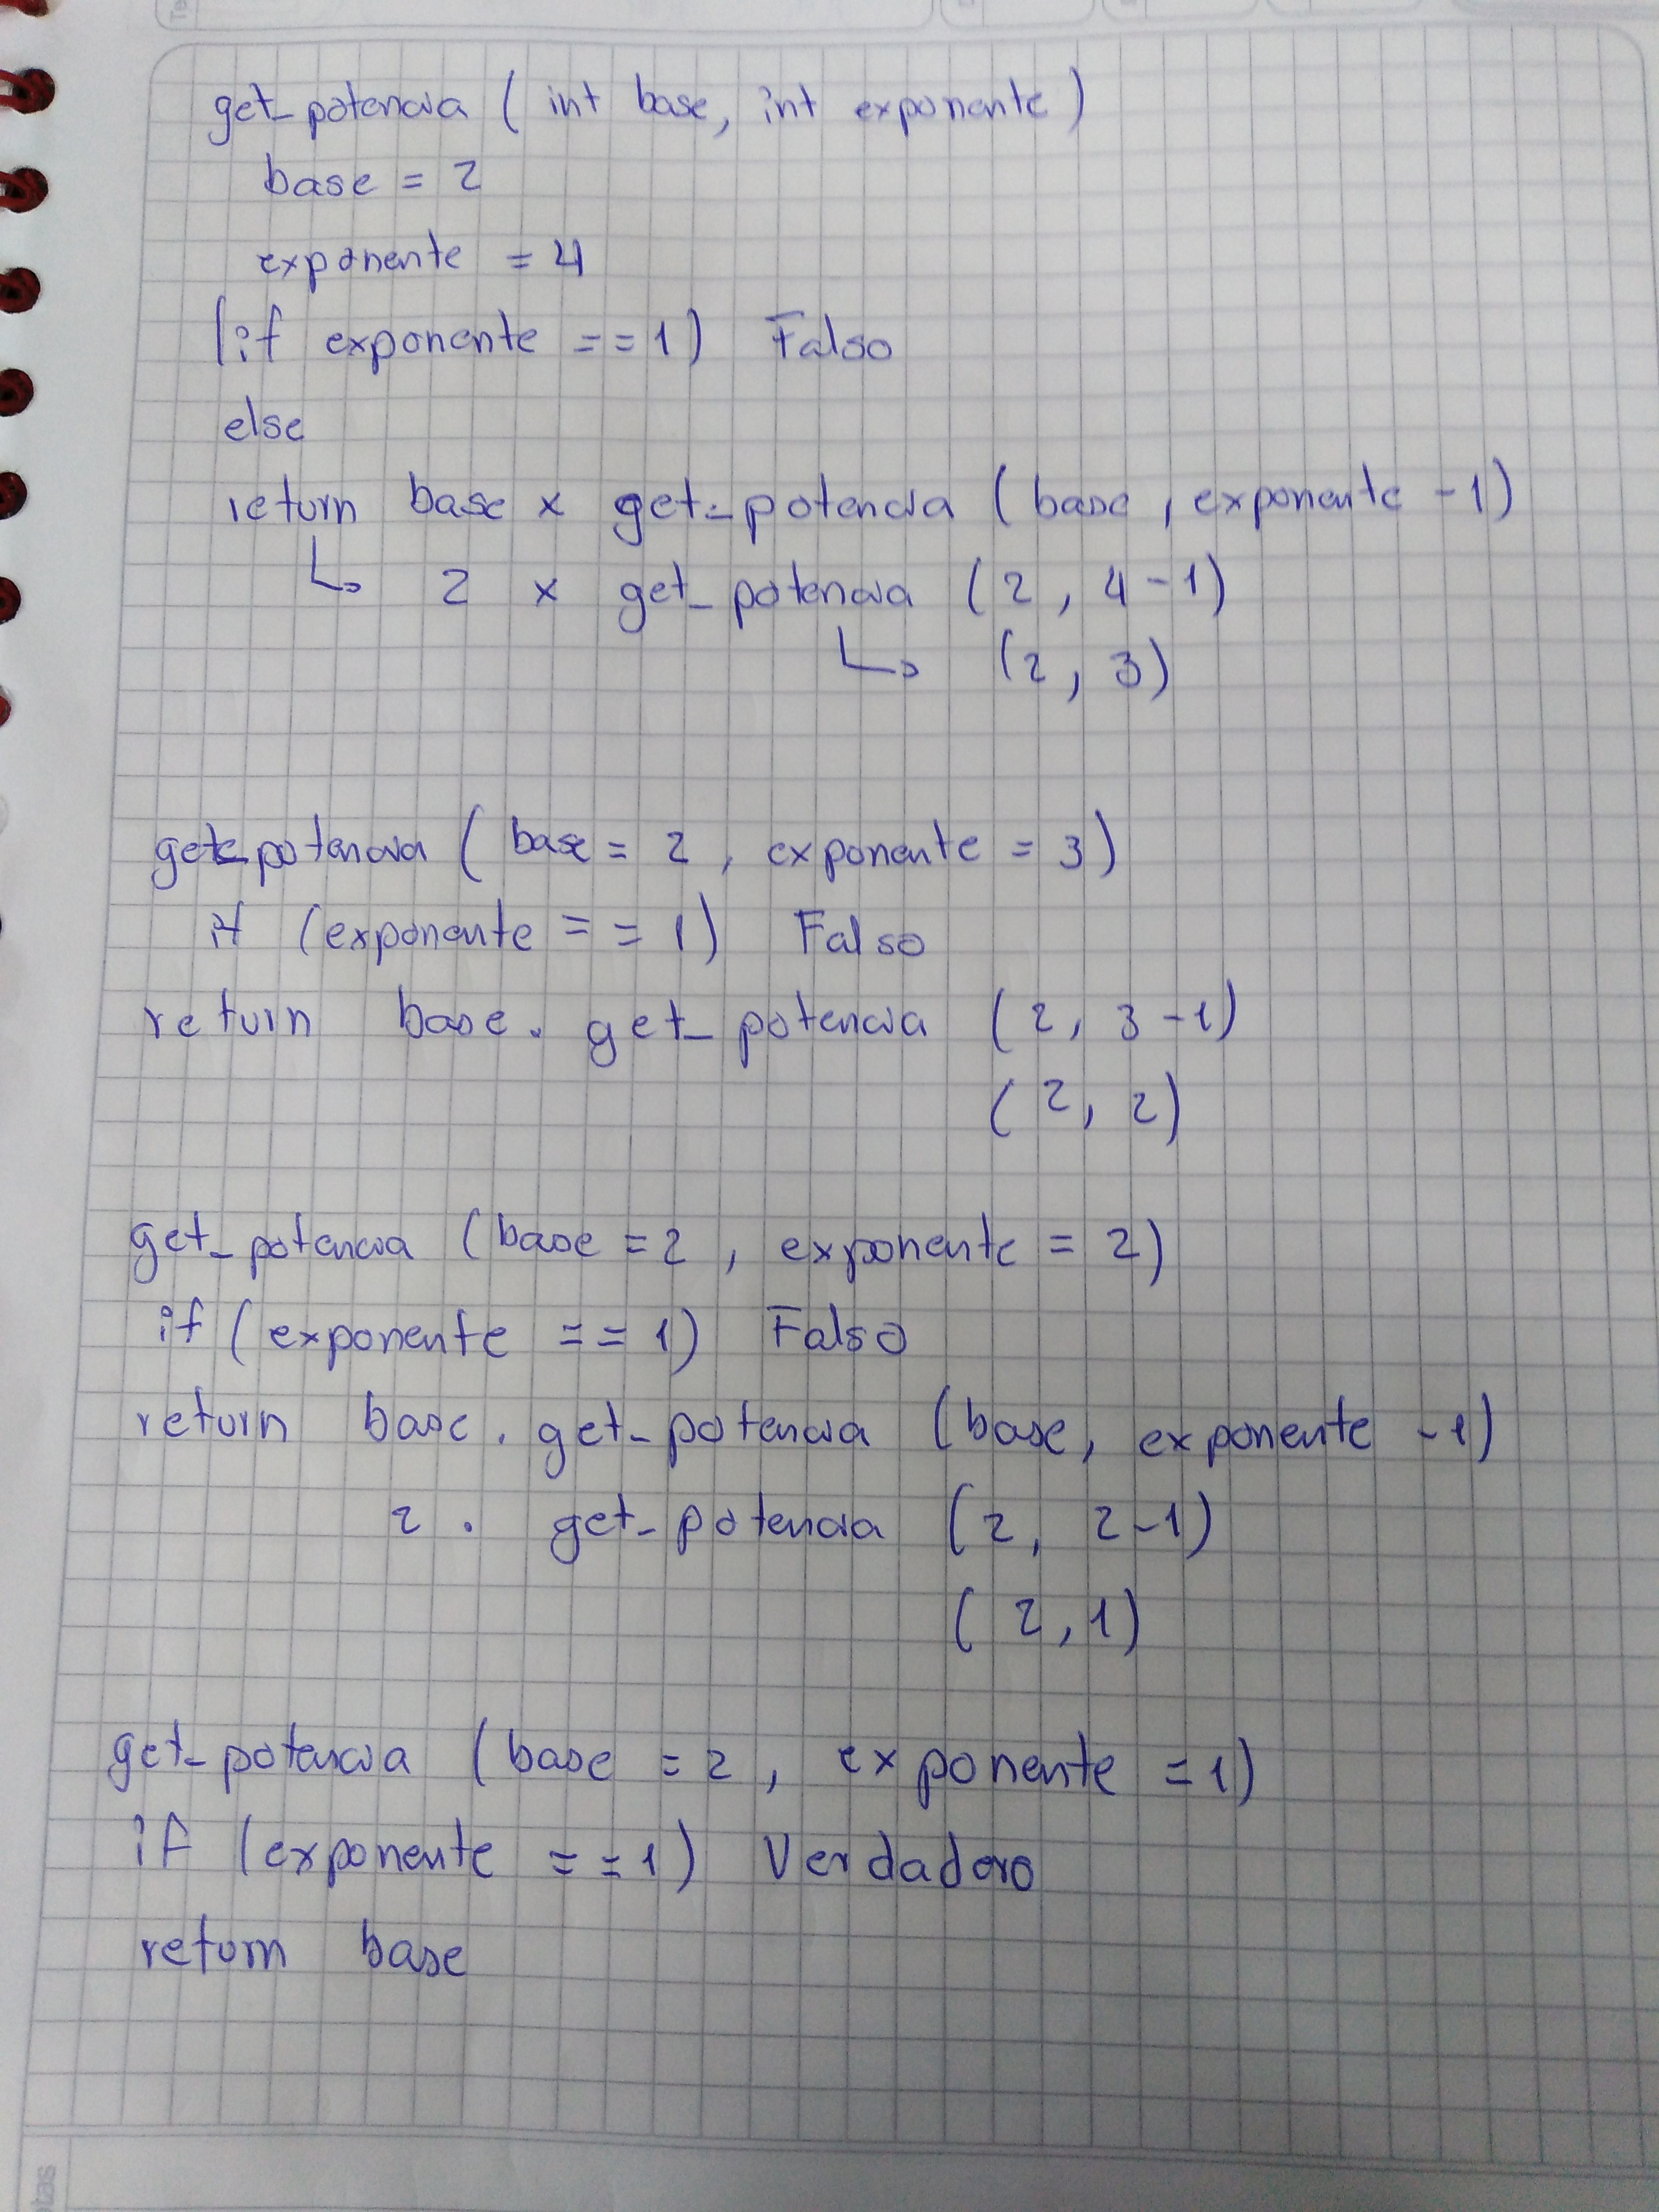 get_potencia ( int base, int exponente )
base = 2
exponente = 4
(if exponente == 1) Falso
else
return base x get_potencia ( base , exponente - 1)
2 x get_potencia ( 2 , 4 - 1)
( 2 , 3 )
get_potencia ( base = 2 , exponente = 3 )
if (exponente == 1) Falso
return base . get_potencia ( 2, 3 - 1)
( 2, 2 )
get_potencia ( base = 2 , exponente = 2 )
if ( exponente == 1) Falso
return base . get_potencia (base, exponente - 1)
2 . get_potencia ( 2, 2 - 1)
( 2, 1)
get_potencia ( base = 2 , exponente = 1)
if (exponente == 1) Verdadero
return base